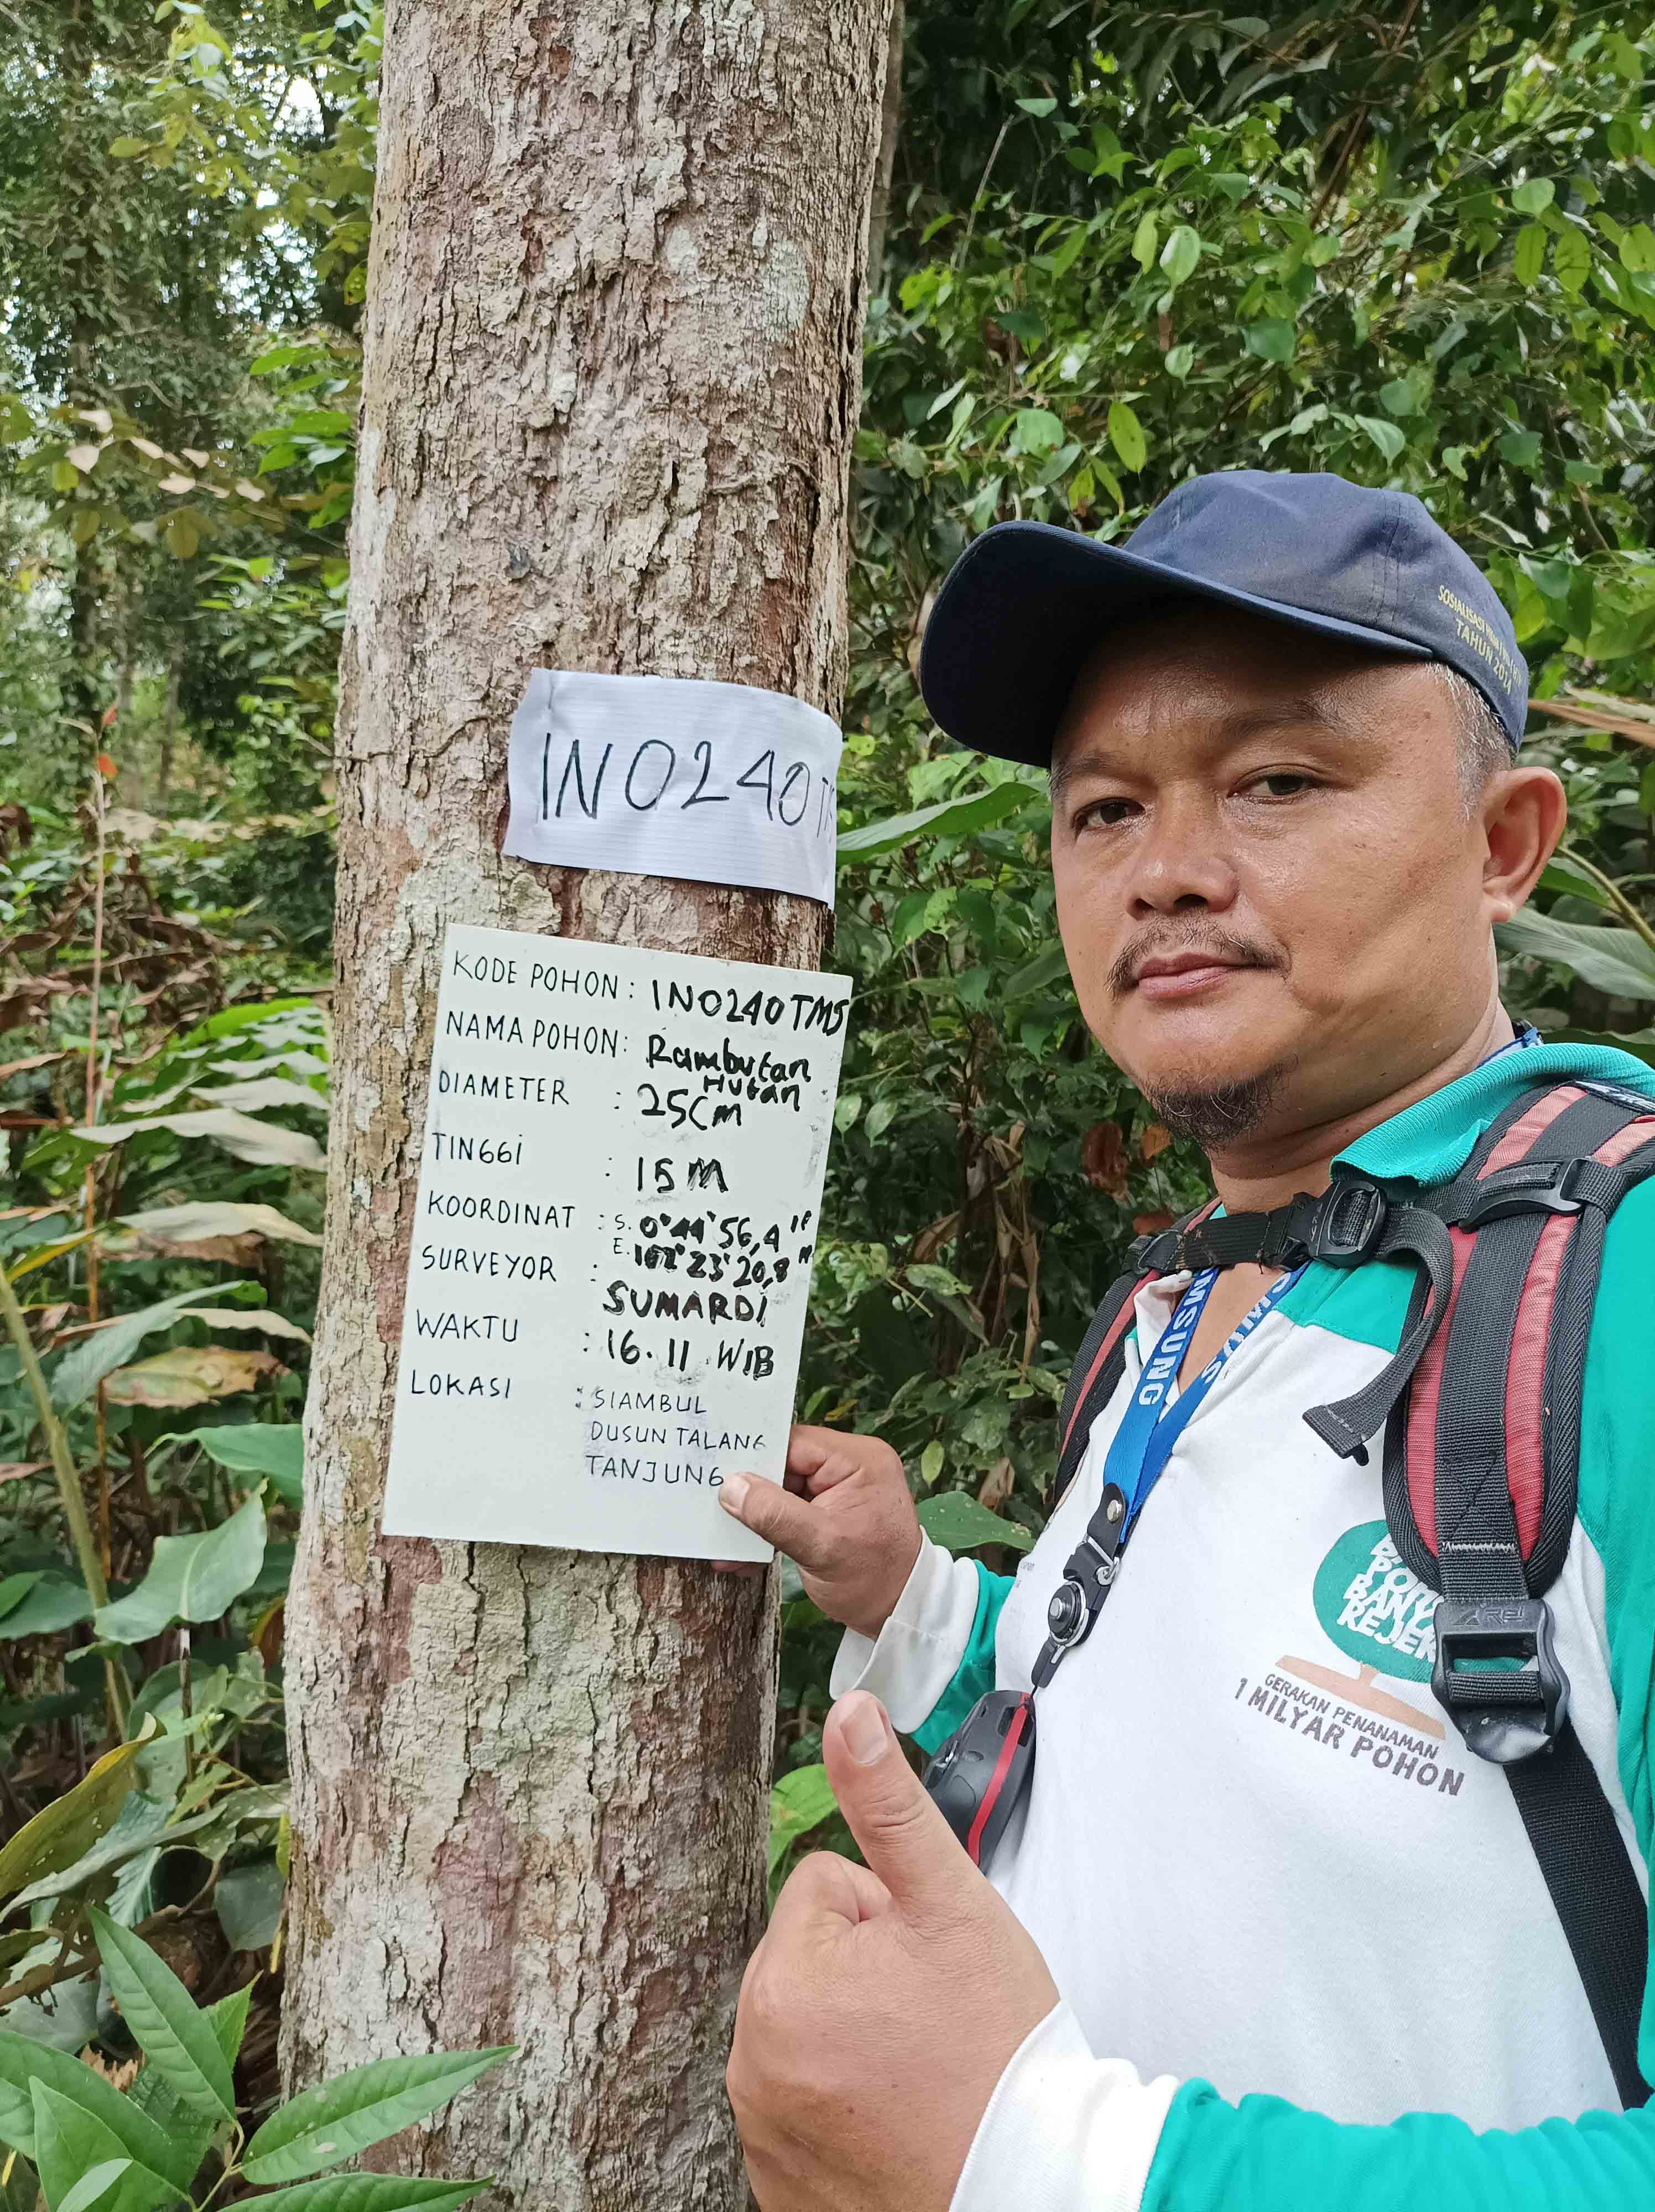 IN0240T
KODE POHON : IN0240TMS
NAMA POHON : Rambutan
Hutan
DIAMETER : 25CM
TINGGI : 15 M
KOORDINAT : S. 0°44'56,4"
E. 102°23'20,8"
SURVEYOR : SUMARDI
WAKTU : 16.11 WIB
LOKASI : SIAMBUL
DUSUN TALANG
TANJUNG
SOSIALISASI
TAHUN 2014
SAMSUNG
BANY
REJEK
GERAKAN PENANAMAN
1 MILYAR POHON